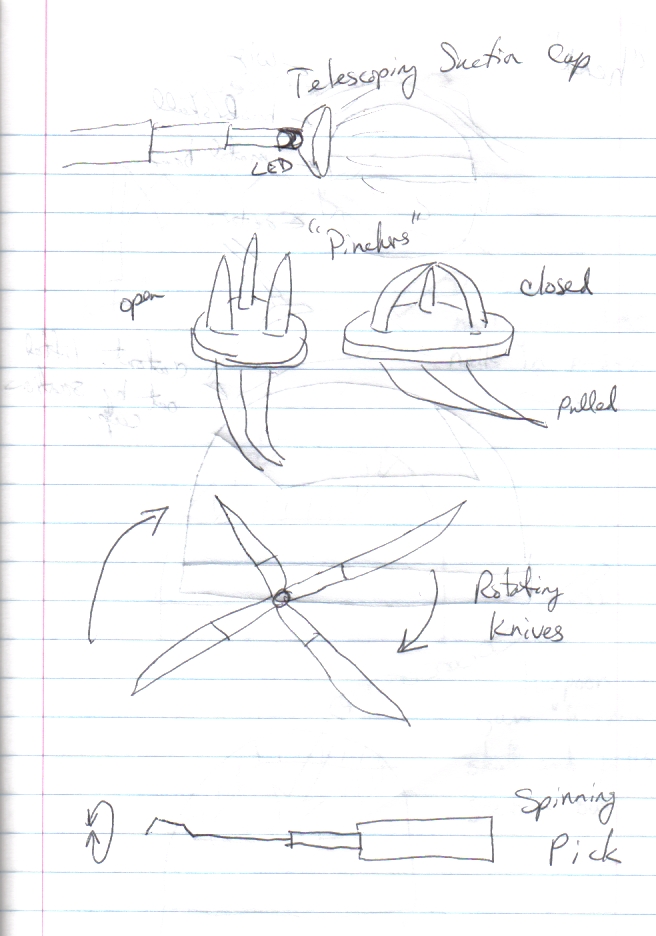 Telescoping Suction Cup
LED
"Pinchers"
open
closed
pulled
Rotating
Knives
Spinning
Pick